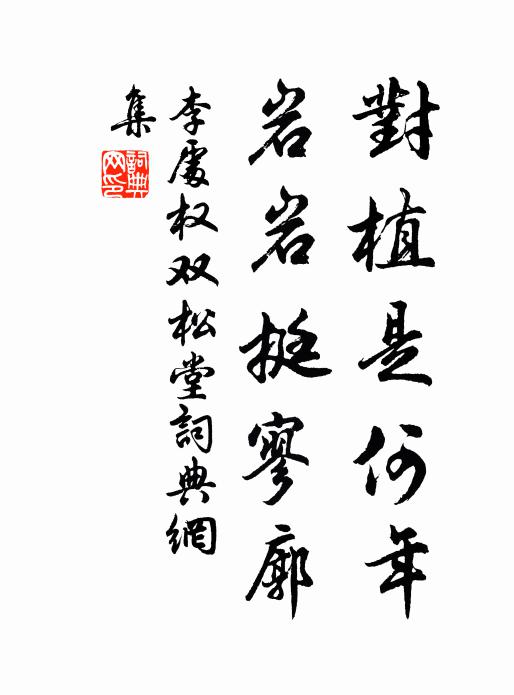 對植是何年
岩岩挺寥廓
李處权双松堂詞典網
集
詞典網印